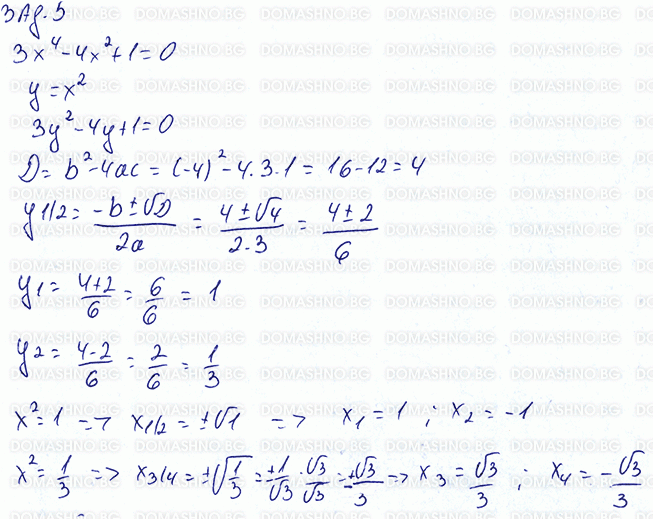 Зад. 5
3x⁴-4x²+1=0
y=x²
3y²-4y+1=0
D= b²-4ac = (-4)²-4.3.1 = 16-12=4
y1/2= (-b±√D)/2a = (4±√4)/2.3 = (4±2)/6
y1= (4+2)/6 = 6/6 = 1
y2= (4-2)/6 = 2/6 = 1/3
x²=1 => x1/2 = ±√1 => x1=1 ; x2=-1
x²=1/3 => x3/4=±√(1/3)=±1/√3·√3/√3=±√3/3 => x3=√3/3 ; x4=-√3/3